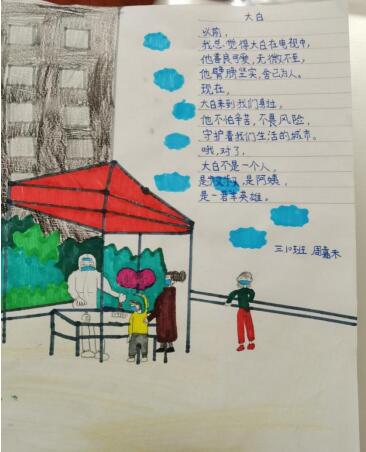 大白
以前，
我总觉得大白在电视中，
他善良可爱，无微不至，
他臂膀坚实，舍己为人。
现在，
大白来到我们身边，
他不怕辛苦，不畏风险，
守护着我们生活的城市。
哦，对了，
大白不是一个人，
是叔叔，是阿姨，
是一群英雄。
三10班 周嘉禾